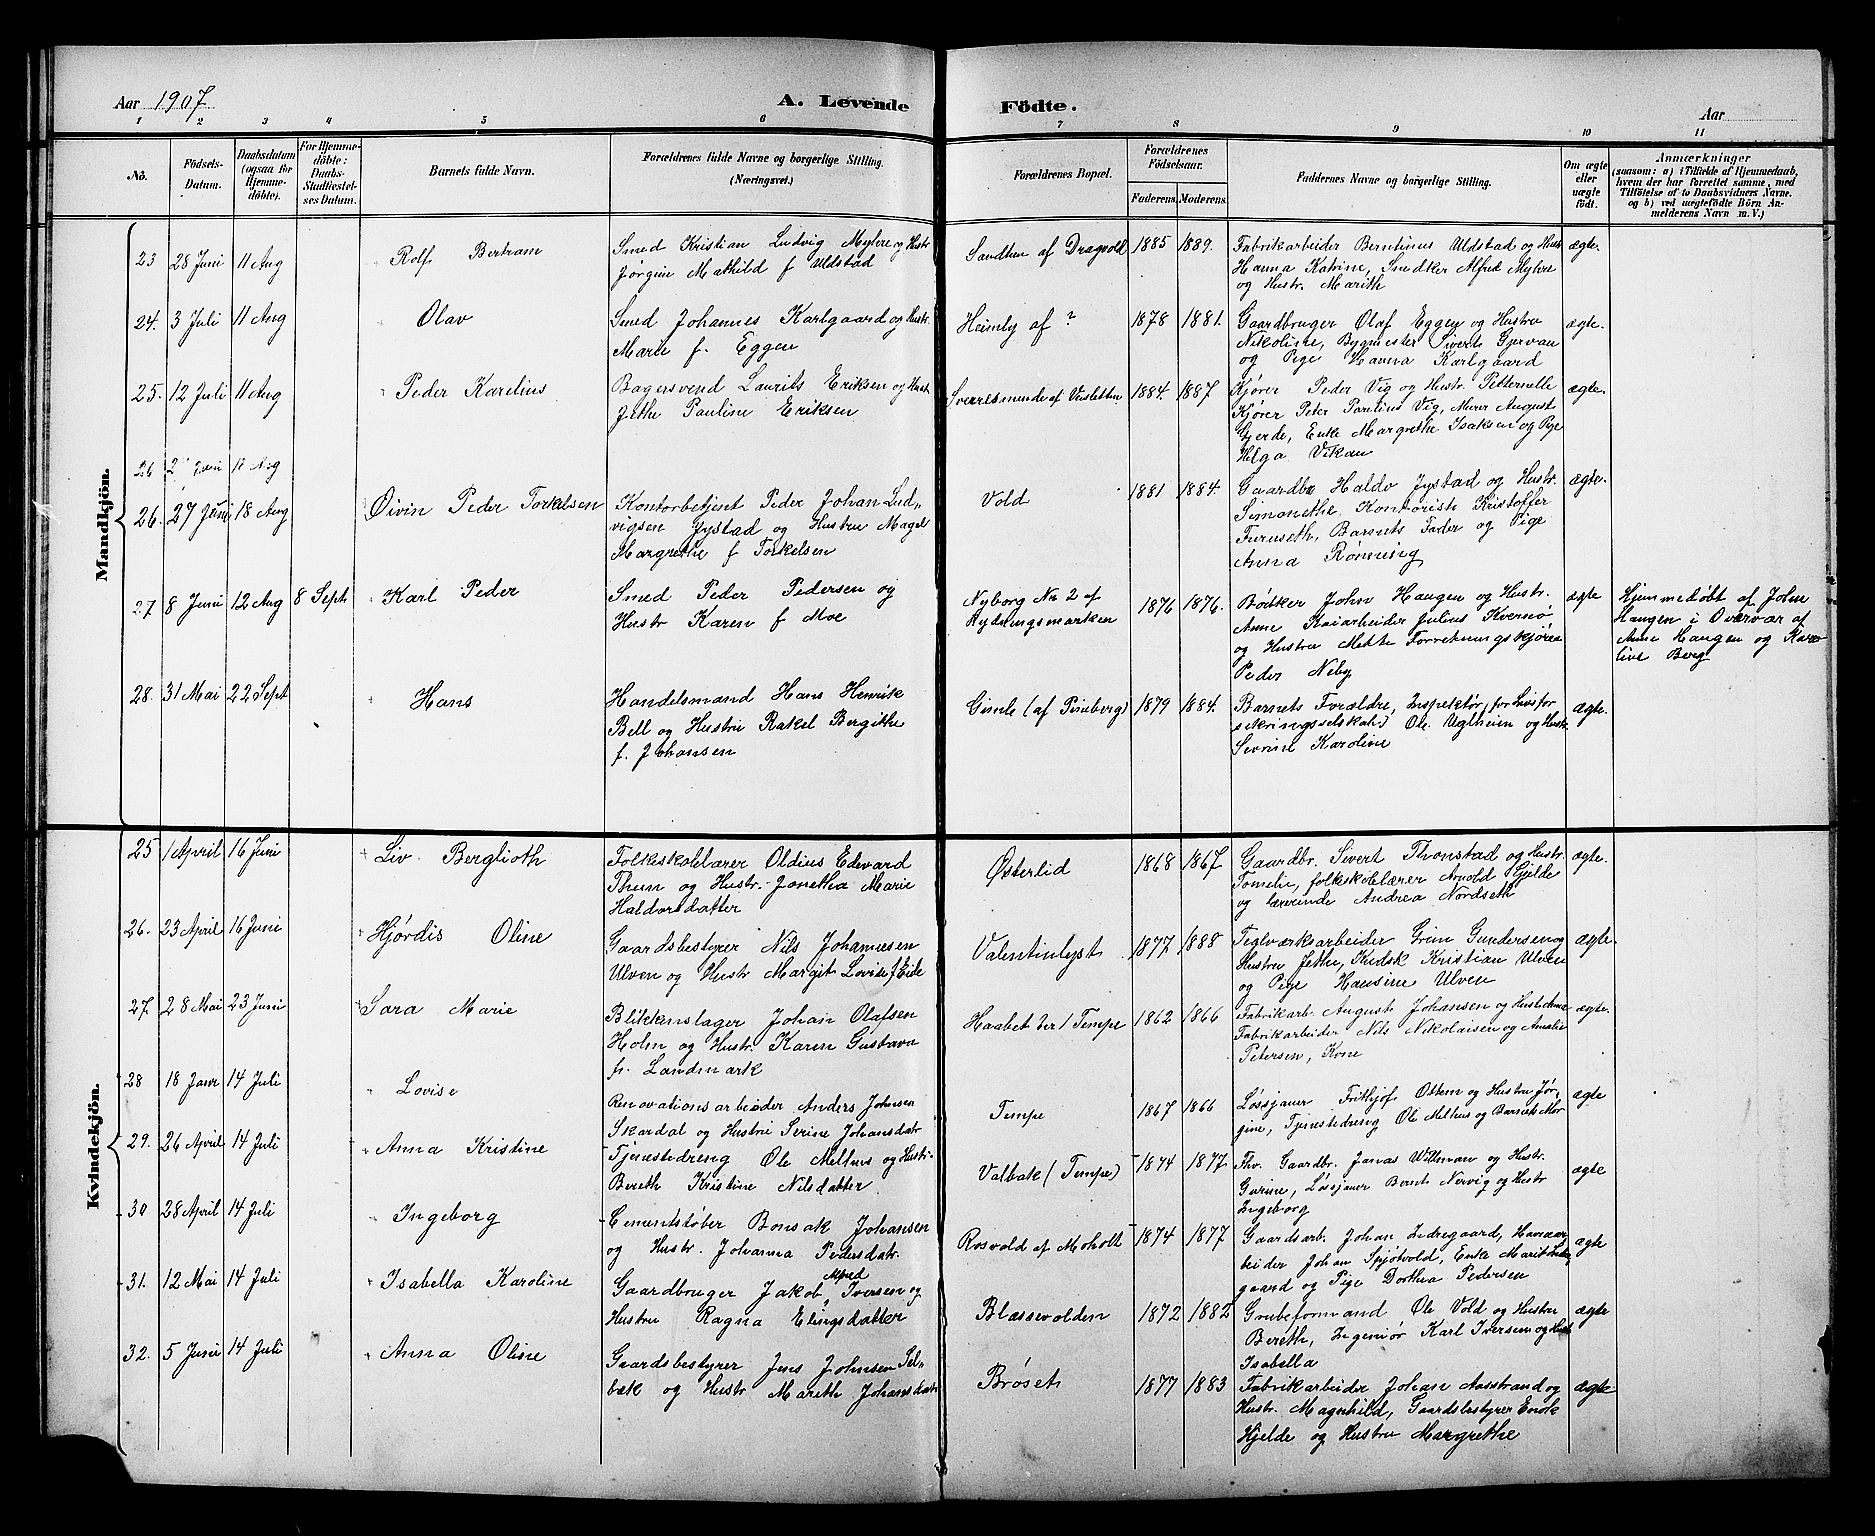 Aar 1907
A. Levende Födte.
Aar
1 2 3 4 5 6 7 8 9 10 11
No.
Födsels-Datum.
Daabsdatum (ogsaa for Hjemme-döbte).
For Hjemme-döbte: Daabs-Stadfæstel-ses Datum.
Barnets fulde Navn.
Forældrenes fulde Navne og borgerlige Stilling. (Næringsvei.)
Forældrenes Bopæl.
Forældrenes Födselsaar.
Faderens. Moderens.
Faddernes Navne og borgerlige Stilling.
Om ægte eller uægte födt.
Anmærkninger
(saasom: a) i Tilfælde af Hjemmedaab,
hvem der har forrettet samme, med
Tilföielse af to Daabsvidners Navne.
og b) ved uægtefödte Börn An-
melderens Navn m. V.)
Mandkjön.
23 28 Juni 11 Aug Rolf Bertram
Smed Kristian Ludvig Myhre og Hustr
Jørgine Mathild f Uldstad
Sandhem af Dragvold 1885 1889.
Fabrikarbeider Berntinus Uldstad og Hust
Hanna Katrine, Snedker Alfred Myhre
og Hustr. Marith
ægte.
24. 3 Juli 11 Aug Olav
Smed Johannes Karlgaard og Hustr.
Marie f. Eggen
Heimly af ? 1878 1881.
Gaardbruger Olaf Eggen og Hustru
Nikoline, Bygmester Sivert Gjervan
og Pige Hanna Karlgaard
ægte.
25. 12 Juli 11 Aug Peder Karelius
Bagersvend Laurits Eriksen og Hust
Jethe Pauline Eriksen
Sverresminde af Vusletten 1884. 1887
Kjører Peder Vig og Hustr. Petternelle
Kjører Peter Paulius Vig, Murer August
Gjerde, Enke Margrethe Isaksen og Pige
Helga Vikan
ægte.
26 2 Juni 11 Aug
26. 27 Juni 18 Aug Øivin Peder Torkelsen
Kontorbetjent Peder Johan Lud-
vigsen Jystad og Hustru Magel
Margrethe f Torkelsen
Vold 1881 1884.
Gaardbr Haldo Jystad og Hustr.
Simonethe, Kontorist Kristoffer
Furuseth, Barnets Fader og Pige
Anna Rönning
ægte.
27 8 Juni 12 Aug 8 Sept Karl Peder
Smed Peder Pedersen og
Hustr Karen f Moe
Nyborg No 2 af
Rydningsmarken
1876 1876.
Bödker John Haugen og Hustr.
Anne Kaiarbeider Julius Kvernø
og Hustru Mette Forretningskjører
Peder Neby
ægte
Hjemmedøbt af John
Haugen i Overvær af
Anne Haugen og Karo
line Berg
28. 31 Mai 22 Sept Hans
Handelsmand Hans Henrik
Bell og Hustru Rakel Bergithe
f. Johansen
Gimle (af Pineberg) 1879 1884.
Barnets Forældre, Inspektør, for Livsfor
sikringsselskab.) Ole Uglheim og Hustr
Sevrine Karoline
ægte.
Kvindekjön.
25 1 April 16 Juni Liv Berglioth
Folkeskolelærer Oldius Edevard
Thun og Hustr. Jonetha Marie
Haldorsdatter
Østerlid 1868 1867
Gaardbr. Sivert Thonstad og Hustr.
Tomelie, folkeskolelærer Arnold Gjelde
og lærerinde Andrea Nordseth
ægte.
26. 23 April 16 Juni Hjördis Oline
Gaardsbestyrer Nils Johannesen
Ulven og Hustr Margit Lovise f Eide
Valentinlyst 1877 1888
Teglværksarbeider Grim Gundersen og
Hustru Jethe, Kudsk Kristian Ulven
og Pige Hansine Ulven
ægte.
27. 28 Mai 23 Juni Sara Marie
Blikkenslager Johan Olafsen
Holm og Hustr. Karen Gustava
f. Landmark
Haabet 2 er 1 Tempe 1862 1866
Fabrikarb. August Johansen og Hustr Anna
Fabrikarbeider Nils Nikolaisen og Amalie
Petersen, Kone
ægte.
28 18 Janr 14 Juli Lovise
Renovationsarbeider Anders Johnsen
Skardal og Hustru Serine Johansdatr
Tempe 1867 1866
Løssjauer Frithjof Ottem og Hustru Jør-
gine, Tjenestedreng Ole Melhus og Barnets Mor
ægte
29. 26 April 14 Juli Anna Kristine
Tjenestedreng Ole Melhus og Hustr.
Bereth Kristine Nilsdatter
Valbak (Tempe) 1874 1877
Thv. Gaardbr. Jonas Willman og Hustr.
Gurine, Løssjauer Bernt Nervig og Hustr
Ingeborg
ægte
30 28 April 14 Juli Ingeborg
Cementstøber Bonsak Johansen
og Hustr. Johanna Pedersdatr.
Rosvold af Moholt 1874 1877
Gaardsarb. Johan Indregaard, Havnear
beider Johan Spjøtvold, Enke Marit Indre
gaard og Pige Dorthea Pedersen
ægte
31. 12 Mai 14 Juli Isabella Karoline
Gaardbruger Jakob Alfred Iversen og
Hustru Ragna Elingsdatter
Blæssevolden 1872 1882
Grubeformand Ole Vold og Hustru
Bereth, Ingeniør Karl Iversen og Hust
Isabella
ægte
32. 5 Juni 14 Juli Anna Oline
Gaardsbestyrer Jens Johnsen Sel-
bæk og Hustr Mareth Johansdatr
Brøset 1877 1883
Fabrikarbeider Johan Aasstrand og
Hustr. Magnhild, Gaardsbestyrer Enok
Hjelde og Hustru Margrethe
ægte